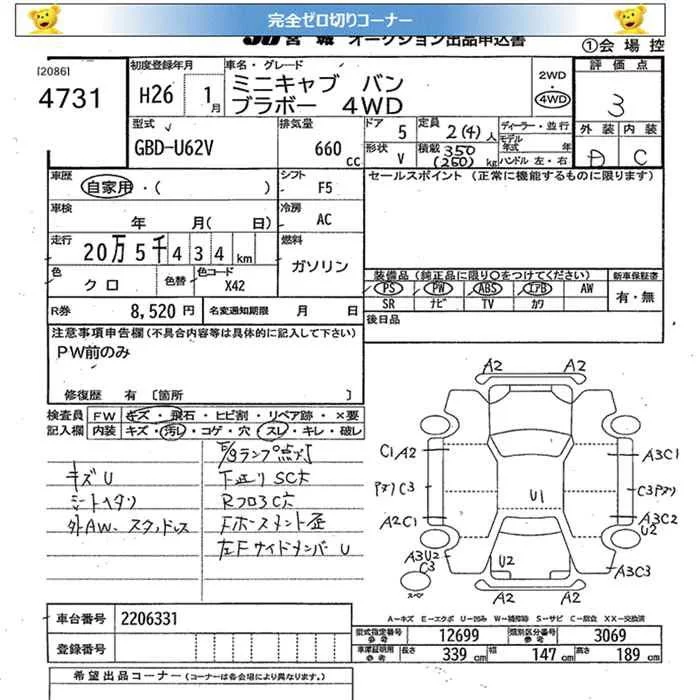 完全ゼロ切りコーナー
JU宮城 オークション出品申込書
①会場控
[2086]
4731
初度登録年月
H26 1月
車名・グレード
ミニキャブ バン
ブラボー 4WD
2WD
4WD
評価点
3
外装 内装
D C
型式
GBD-U62V
排気量
660 cc
ドア 5
形状 V
定員 2(4)人
積載 350
(250) kg
ディーラー・並行
モデル年式 年
ハンドル 左・右
車歴
自家用・( )
シフト
F5
セールスポイント (正常に機能するものに限ります)
車検
年 月( 日)
冷房
AC
走行
20万5千434km
燃料
ガソリン
色
クロ
色替
色コード
X42
装備品 (純正品に限り○をつけてください)
PS PW ABS エアB AW
SR ナビ TV カワ
新車保証書
有・無
R券 8,520円
名変通知期限 月 日
後日品
注意事項申告欄 (不具合内容等は具体的に記入して下さい)
PW前のみ
修復歴 有 [箇所 ]
検査員 FW キズ・飛石・ヒビ割・リペア跡・×要
記入欄 内装 キズ・汚レ・コゲ・穴・スレ・キレ・破レ
キズU
シートヘタリ
外AW、スタッドレス
F/gランプ点灯
下廻りSC大
Rフロア3C穴
Fホースメント歪
左FサイドメンバーU
A2 A2
C1 A2
A3C1
U1
C3
C3
A2C1
A3C2
U2
A3U2
C3
U2
A3C3
A2 A2
A-キズ E-エクボ U-凹み W-補修跡 S-サビ C-腐食 XX-交換済
車台番号 2206331
登録番号
型式指定番号 参考 12699
類別区分番号 参考 3069
車庫証明用 参考 長さ 339 cm 幅 147 cm 高さ 189 cm
希望出品コーナー (コーナーは各会場により異なります。)